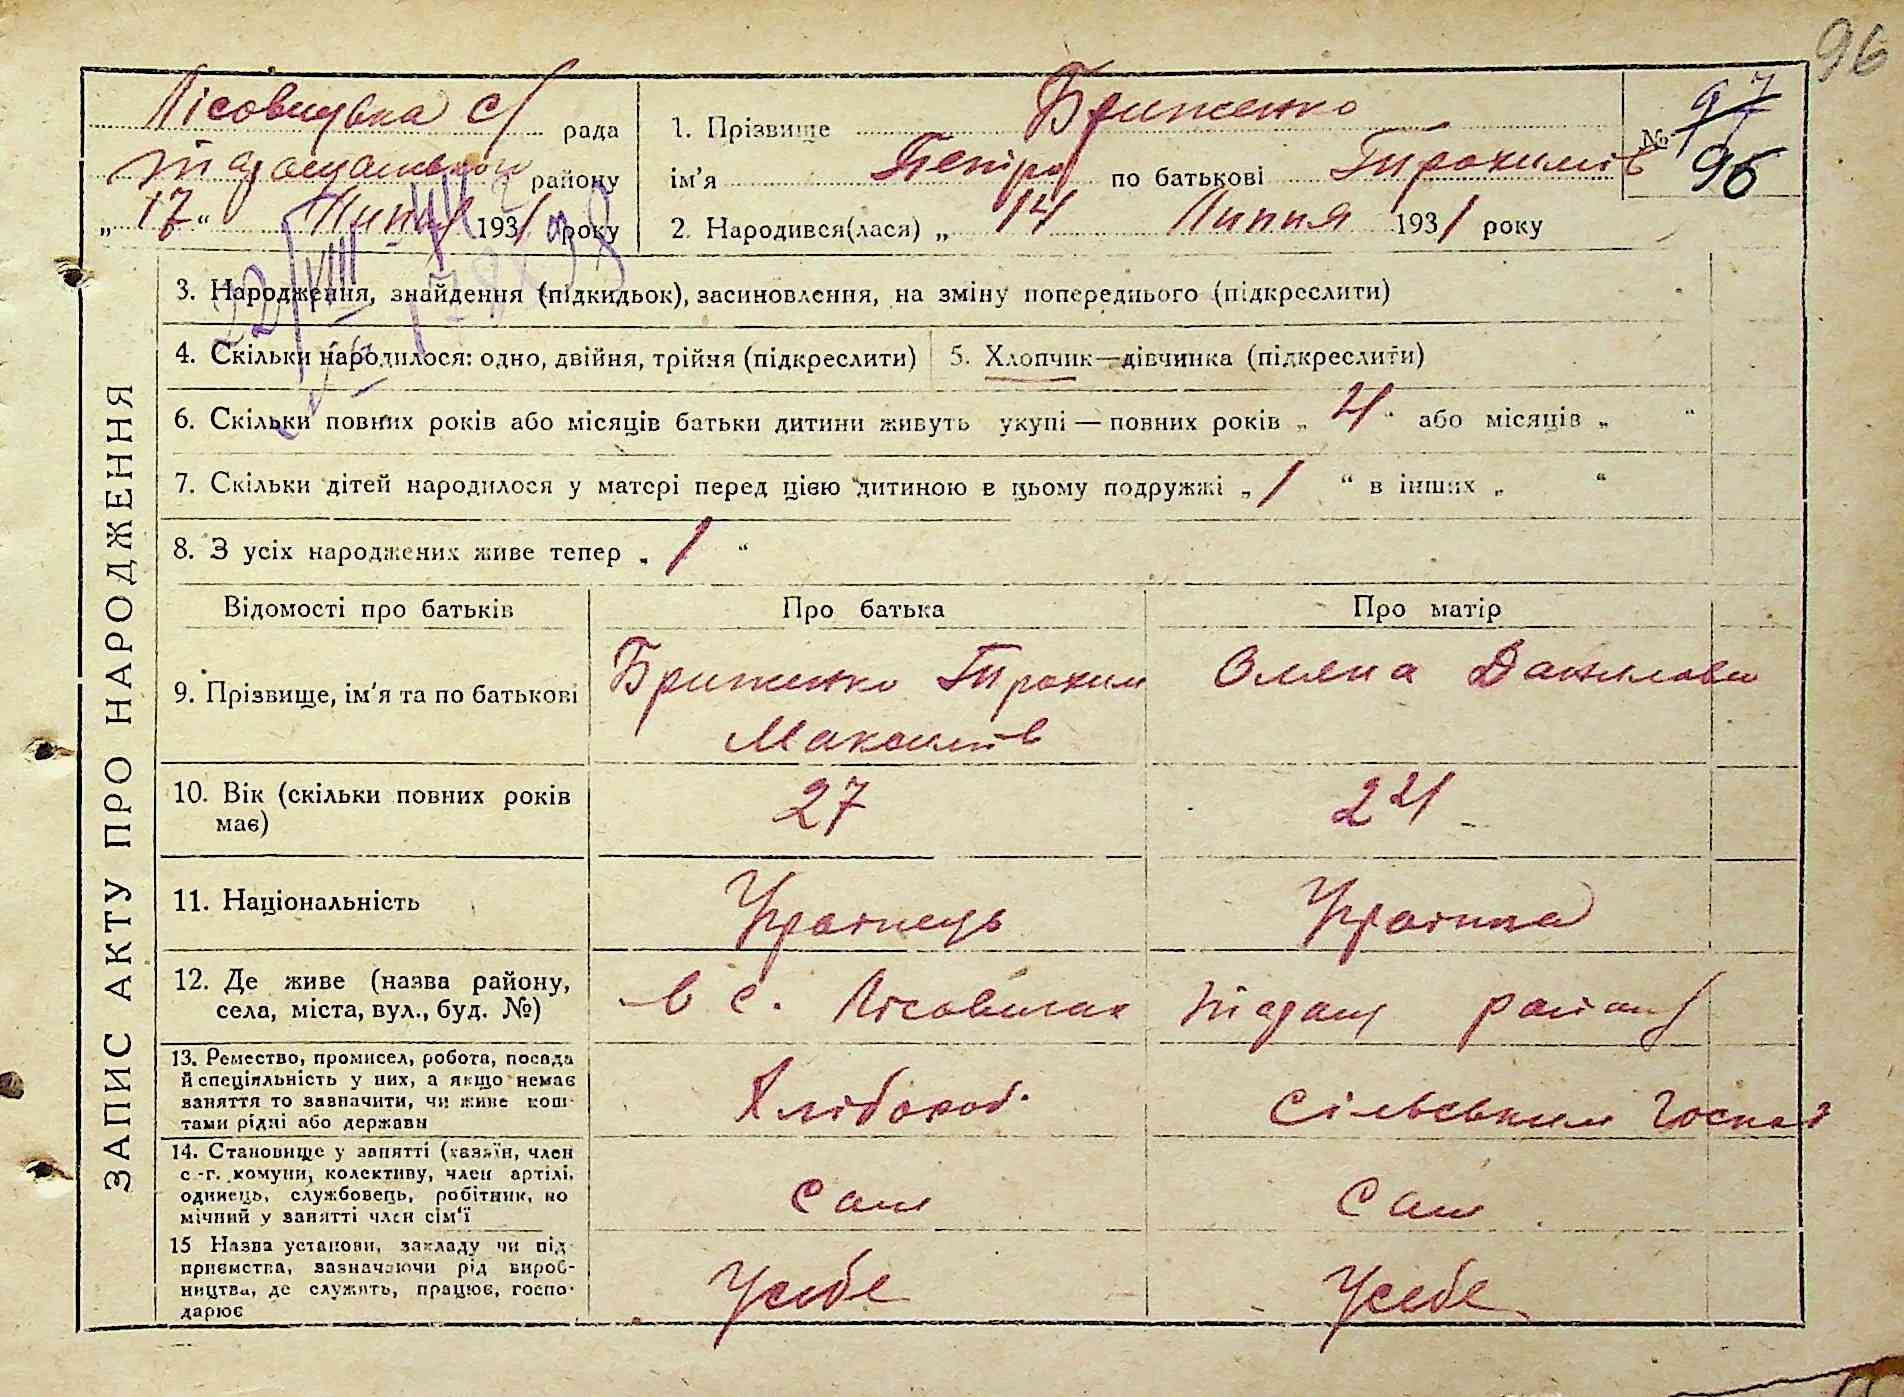 96
Лісовицька с/ рада
Таращанського району
„17“ Липня 1931 року
1. Прізвище Бриженко
ім'я Петро по батькові Трохимів
2. Народився(лася) „14 Липня 1931 року
№ 97
96
22/VIII
3. Народження, знайдення (підкидьок), засиновлення, на зміну попереднього (підкреслити)
4. Скільки народилося: одно, двійня, трійня (підкреслити)
5. Хлопчик—дівчинка (підкреслити)
6. Скільки повних років або місяців батьки дитини живуть укупі — повних років „ 4 “ або місяців „ “
7. Скільки дітей народилося у матері перед цією дитиною в цьому подружжі „ 1 “ в інших „ “
8. З усіх народжених живе тепер „ 1 “
ЗАПИС АКТУ ПРО НАРОДЖЕННЯ
Відомості про батьків
Про батька
Про матір
9. Прізвище, ім'я та по батькові
Бриженко Трохим
Максимів
Оляна Данилова
10. Вік (скільки повних років
має)
27
24
11. Національність
Українець
Українка
12. Де живе (назва району,
села, міста, вул., буд. №)
в с. Лісовичах
Таращ району
13. Ремество, промисел, робота, посада
й спеціяльність у них, а якщо немає
заняття то зазначити, чи живе кош-
тами рідні або держави
Хлібороб.
Сільським Господ
14. Становище у занятті (хазяїн, член
с.-г. комуни, колективу, член артілі,
одинець, службовець, робітник, по
мічний у занятті член сім'ї
Сам
Сам
15 Назва установи, закладу чи під-
приємства, зазначаючи рід вироб-
ництва, де служить, працює, госпо-
дарює
У себе
У себе